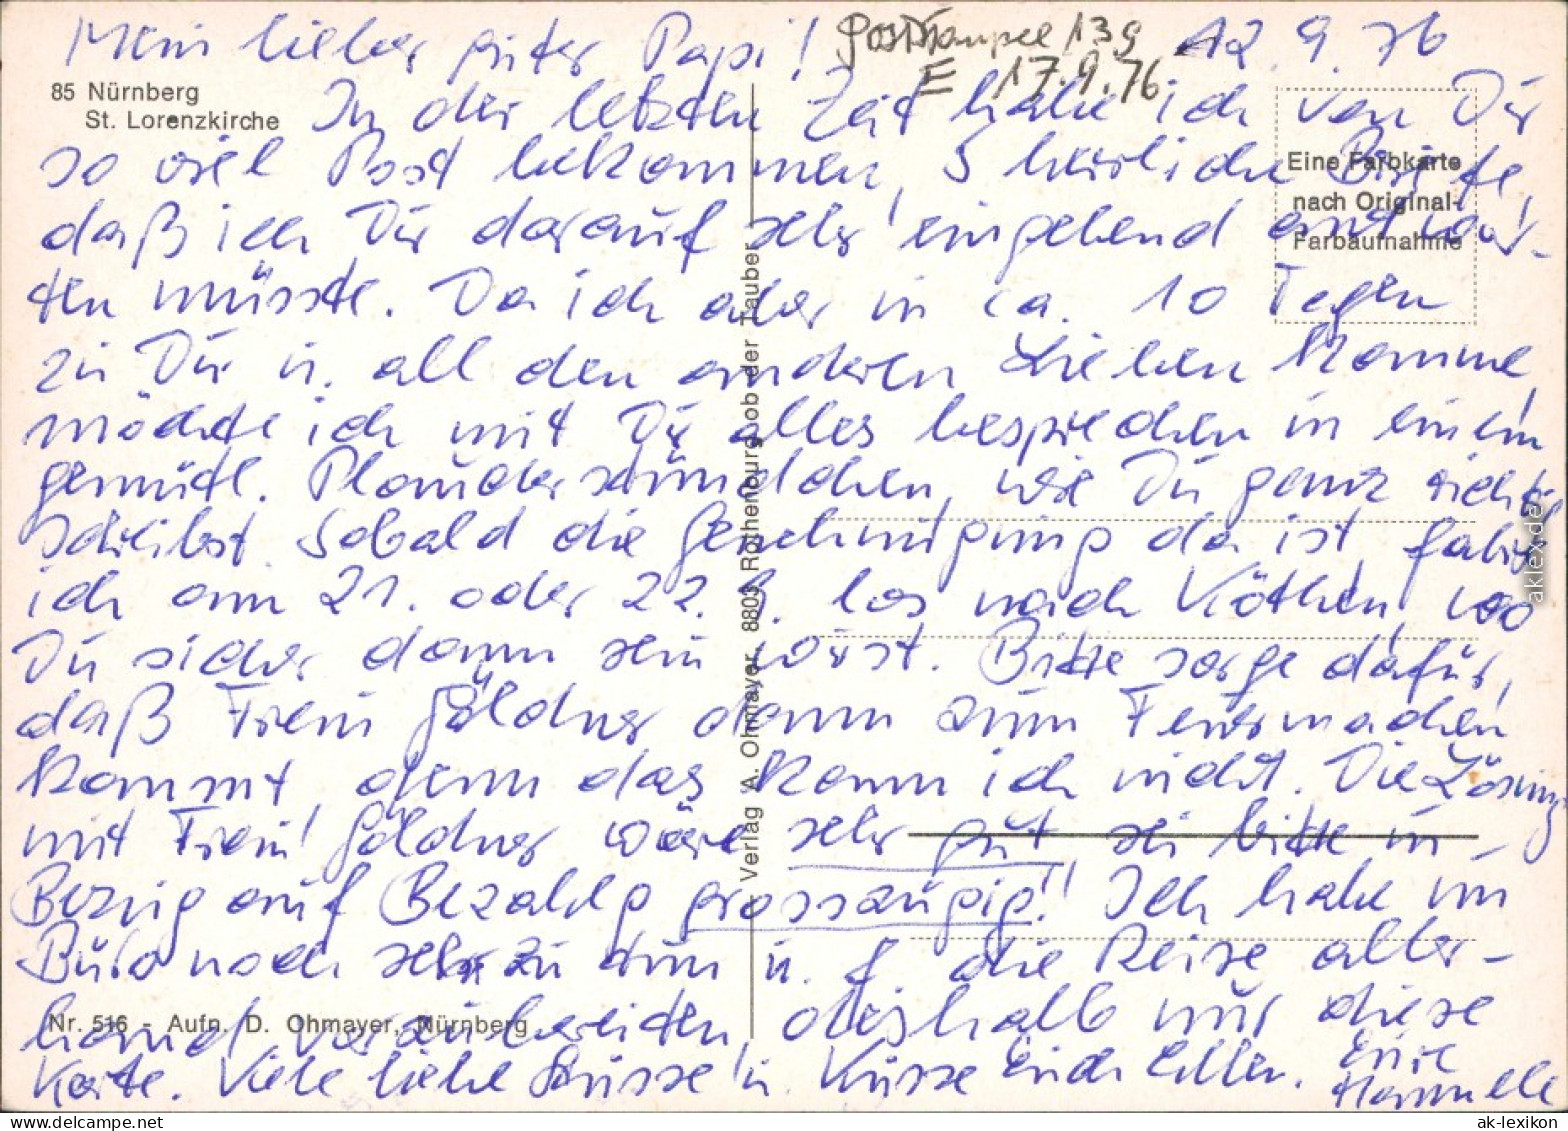 Mein lieber guter Papi! Poststempel 13 9 12.9.76
E 17.9.76
85 Nürnberg
St. Lorenzkirche
In der letzten Zeit habe ich von Dir
so viel Post bekommen, 5 herzliche Briefe,
Eine Farbkarte
nach Original-
Farbaufnahme
daß ich Dir darauf sehr eingehend antwor-
ten müsste. Da ich aber in ca. 10 Tagen
zu Dir u. all den anderen Lieben komme,
möchte ich mit Dir alles besprechen in einem
gemütl. Plauderstündchen, wie Du ganz richtig
schreibst. Sobald die Genehmigung da ist, fahre
ich am 21. oder 22. 9. los nach Köthen, wo
Du sicher dann sein wirst. Bitte sorge dafür,
daß Frau Göldner dann zum Feuermachen
kommt, denn das kann ich nicht. Die Lösung
mit Frau Göldner wäre sehr gut, sei bitte in
Bezug auf Bezahlg grosszügig!! Ich habe im
Büro noch sehr zu tun u. f. die Reise aller-
hand vorzubereiten deshalb nur diese
Karte. Viele liebe Grüsse u. Küsse Euch Allen. Eure
Hannele
Nr. 516 - Aufn. D. Ohmayer, Nürnberg
Verlag A. Ohmayer, 8803 Rothenburg ob der Tauber
aklex.de
ak-lexikon